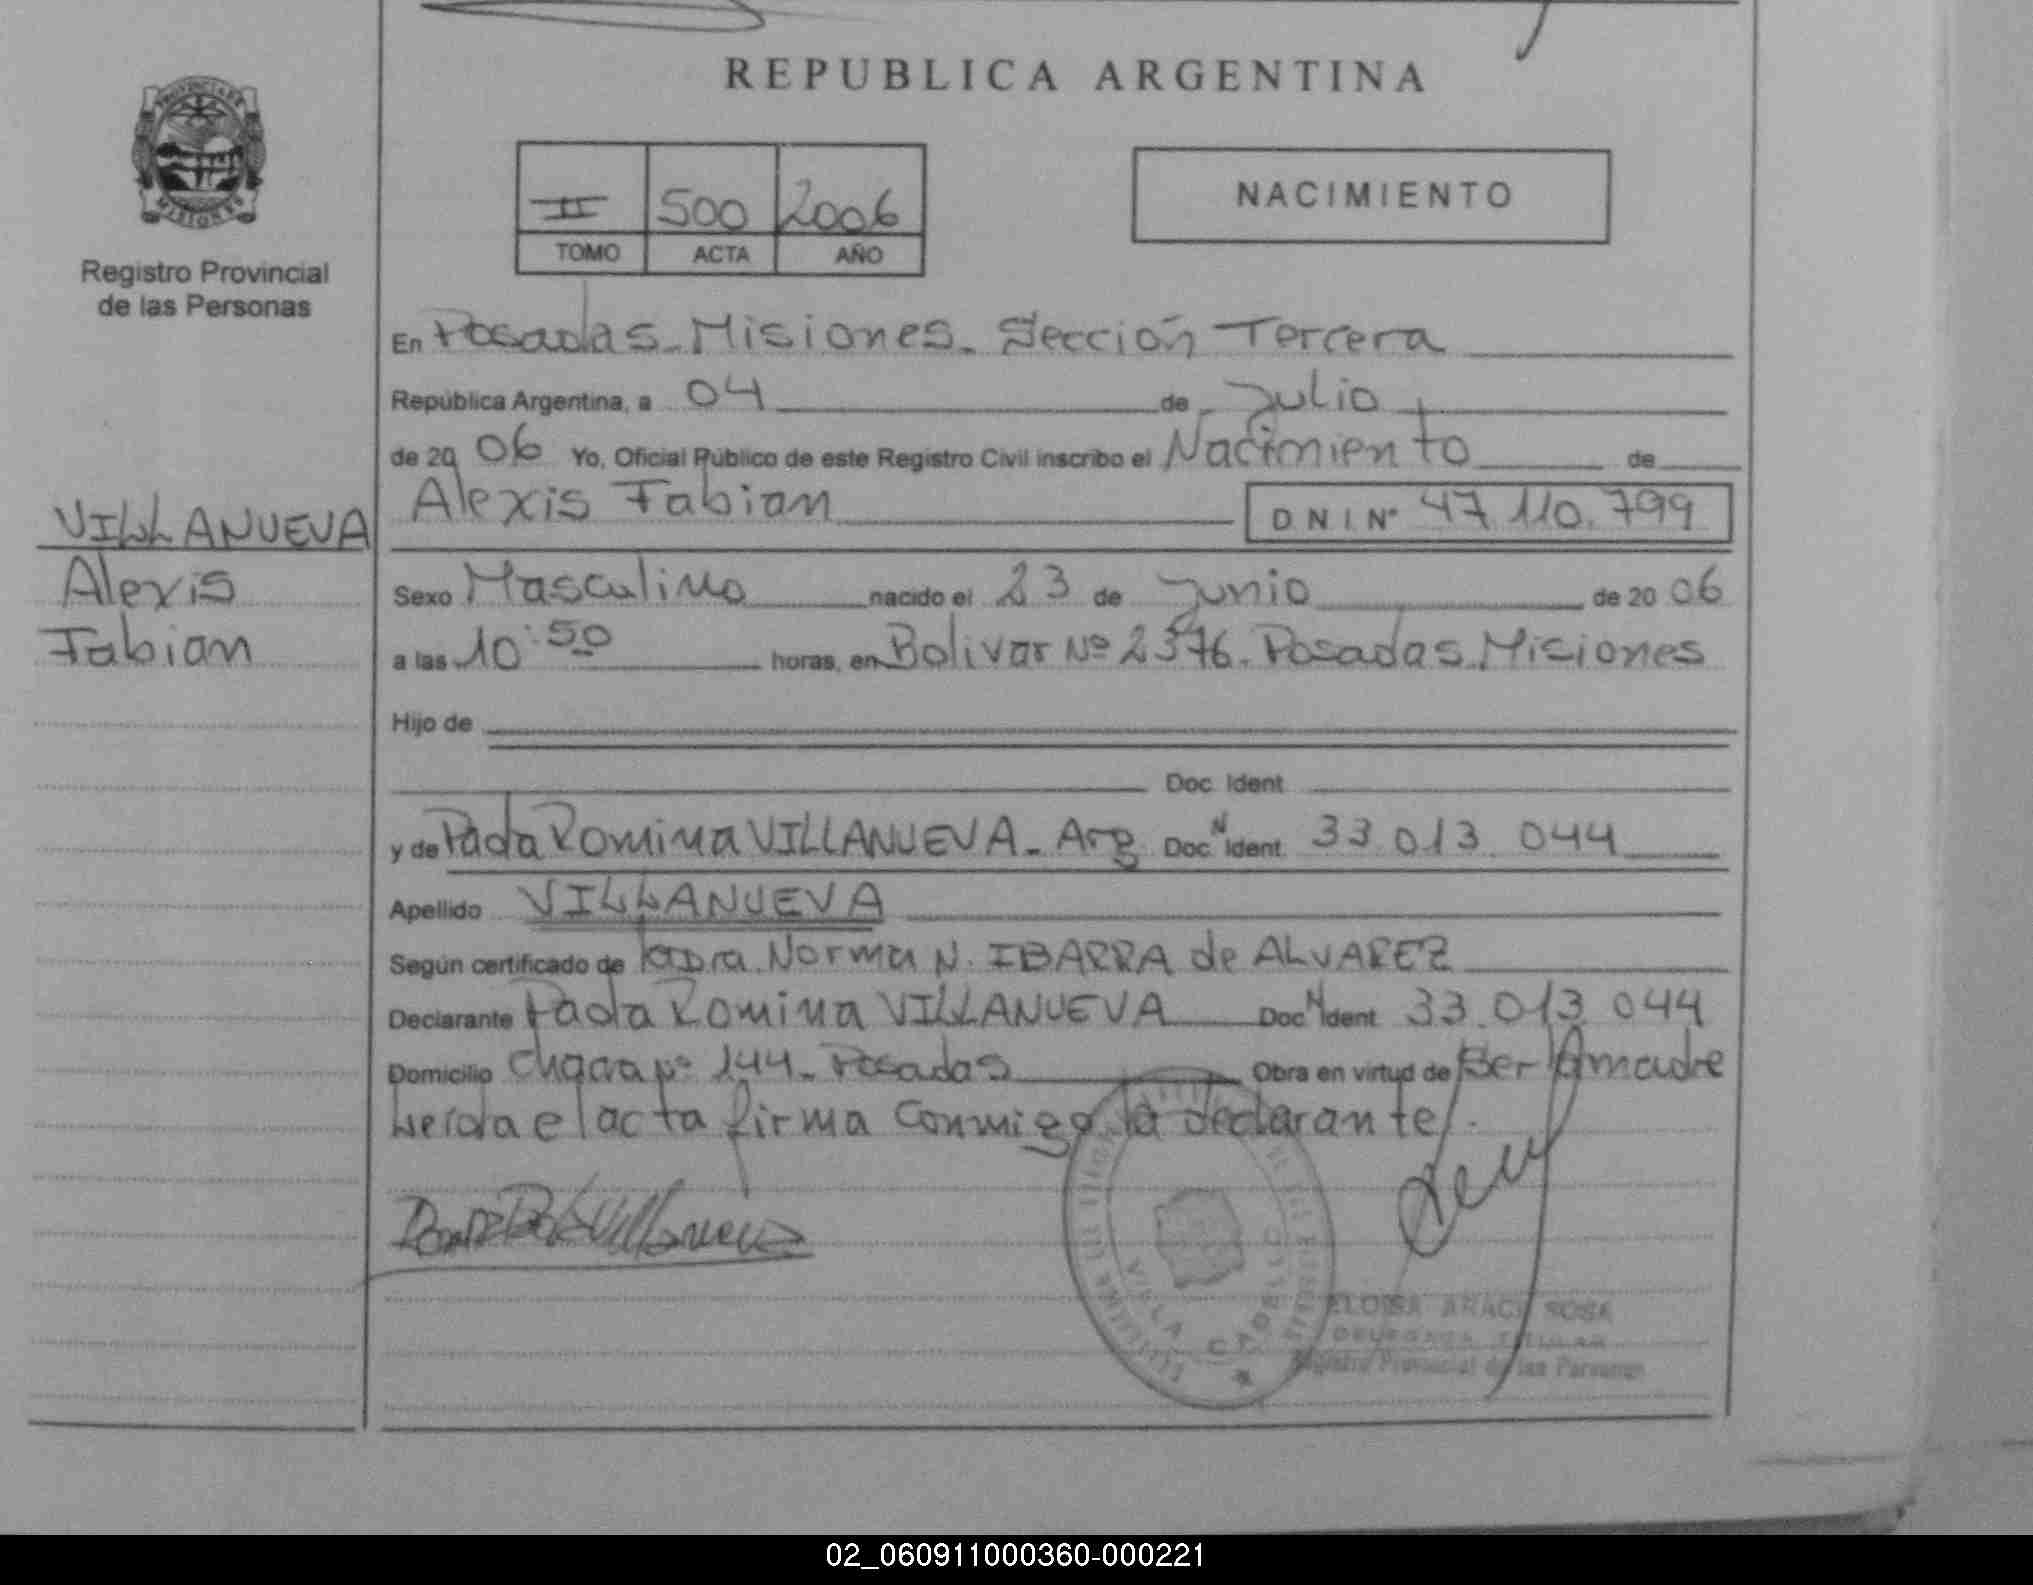 REPUBLICA ARGENTINA
PROVINCIA DE
MISIONES
Registro Provincial
de las Personas
II 500 2006
TOMO ACTA AÑO
NACIMIENTO
En Posadas - Misiones - Sección Tercera
República Argentina, a 04 de Julio
de 20 06 Yo, Oficial Público de este Registro Civil inscribo el Nacimiento de
VILLANUEVA
Alexis
Fabian
Alexis Fabian D N I Nº 47.110.799
Sexo Masculino nacido el 23 de Junio de 20 06
a las 10:50 horas, en Bolivar Nº 2376. Posadas. Misiones
Hijo de
Doc. Ident.
y de Paola Romina VILLANUEVA - Arg Doc. N Ident. 33.013.044
Apellido VILLANUEVA
Según certificado de la Dra. Norma N. IBARRA de ALVAREZ
Declarante Paola Romina VILLANUEVA Doc. N Ident. 33.013.044
Domicilio Chacra Nº 144 - Posadas Obra en virtud de Ser la madre
Leída el acta firma conmigo la declarante.
Villanueva
VILLA CABELLO
ELOISA ARACI SOSA
DELEGADA TITULAR
Registro Provincial de las Personas
02_060911000360-000221